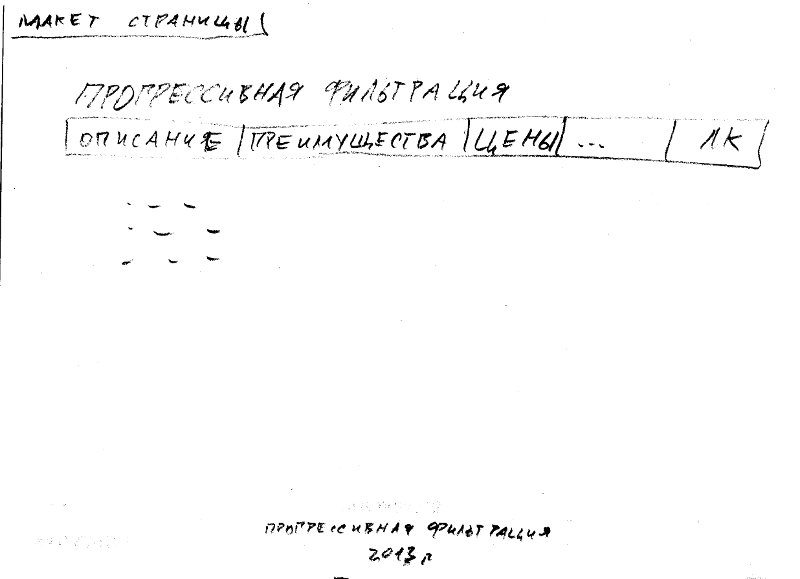 МАКЕТ СТРАНИЦЫ
ПРОГРЕССИВНАЯ ФИЛЬТРАЦИЯ
ОПИСАНИЕ ПРЕИМУЩЕСТВА ЦЕНЫ ... ЛК
ПРОГРЕССИВНАЯ ФИЛЬТРАЦИЯ
2013 г